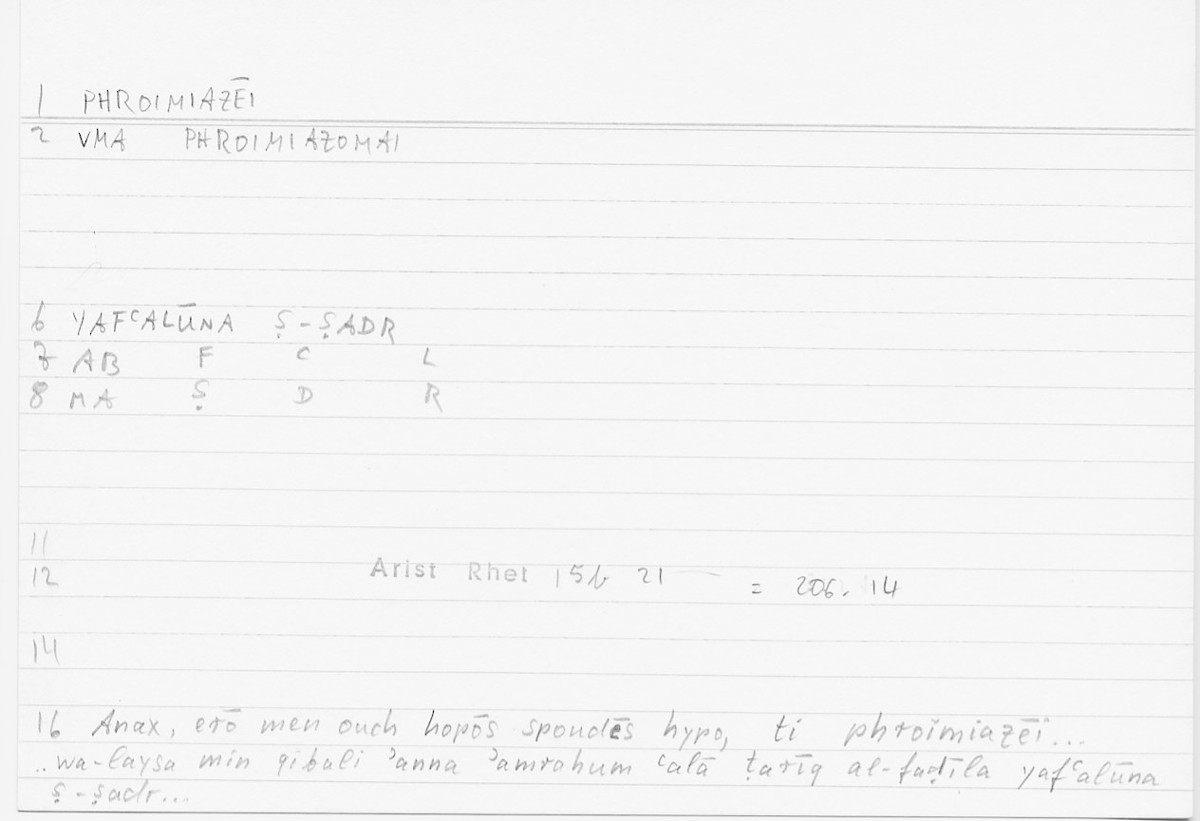 1 PHROIMIAZĒI
2 VMA PHROIMIAZOMAI
6 YAFʿALŪNA Ṣ-ṢADR
7 AB F ʿ L
8 MA Ṣ D R
11
12 Arist Rhet 15b 21 = 206. 14
14
16 Anax, erō men ouch hopōs spoudēs hypo, ti phroimiazēi...
..wa-laysa min qibali ʾanna ʾamrahum ʿalā ṭarīq al-faḍīla yafʿalūna
ṣ-ṣadr...